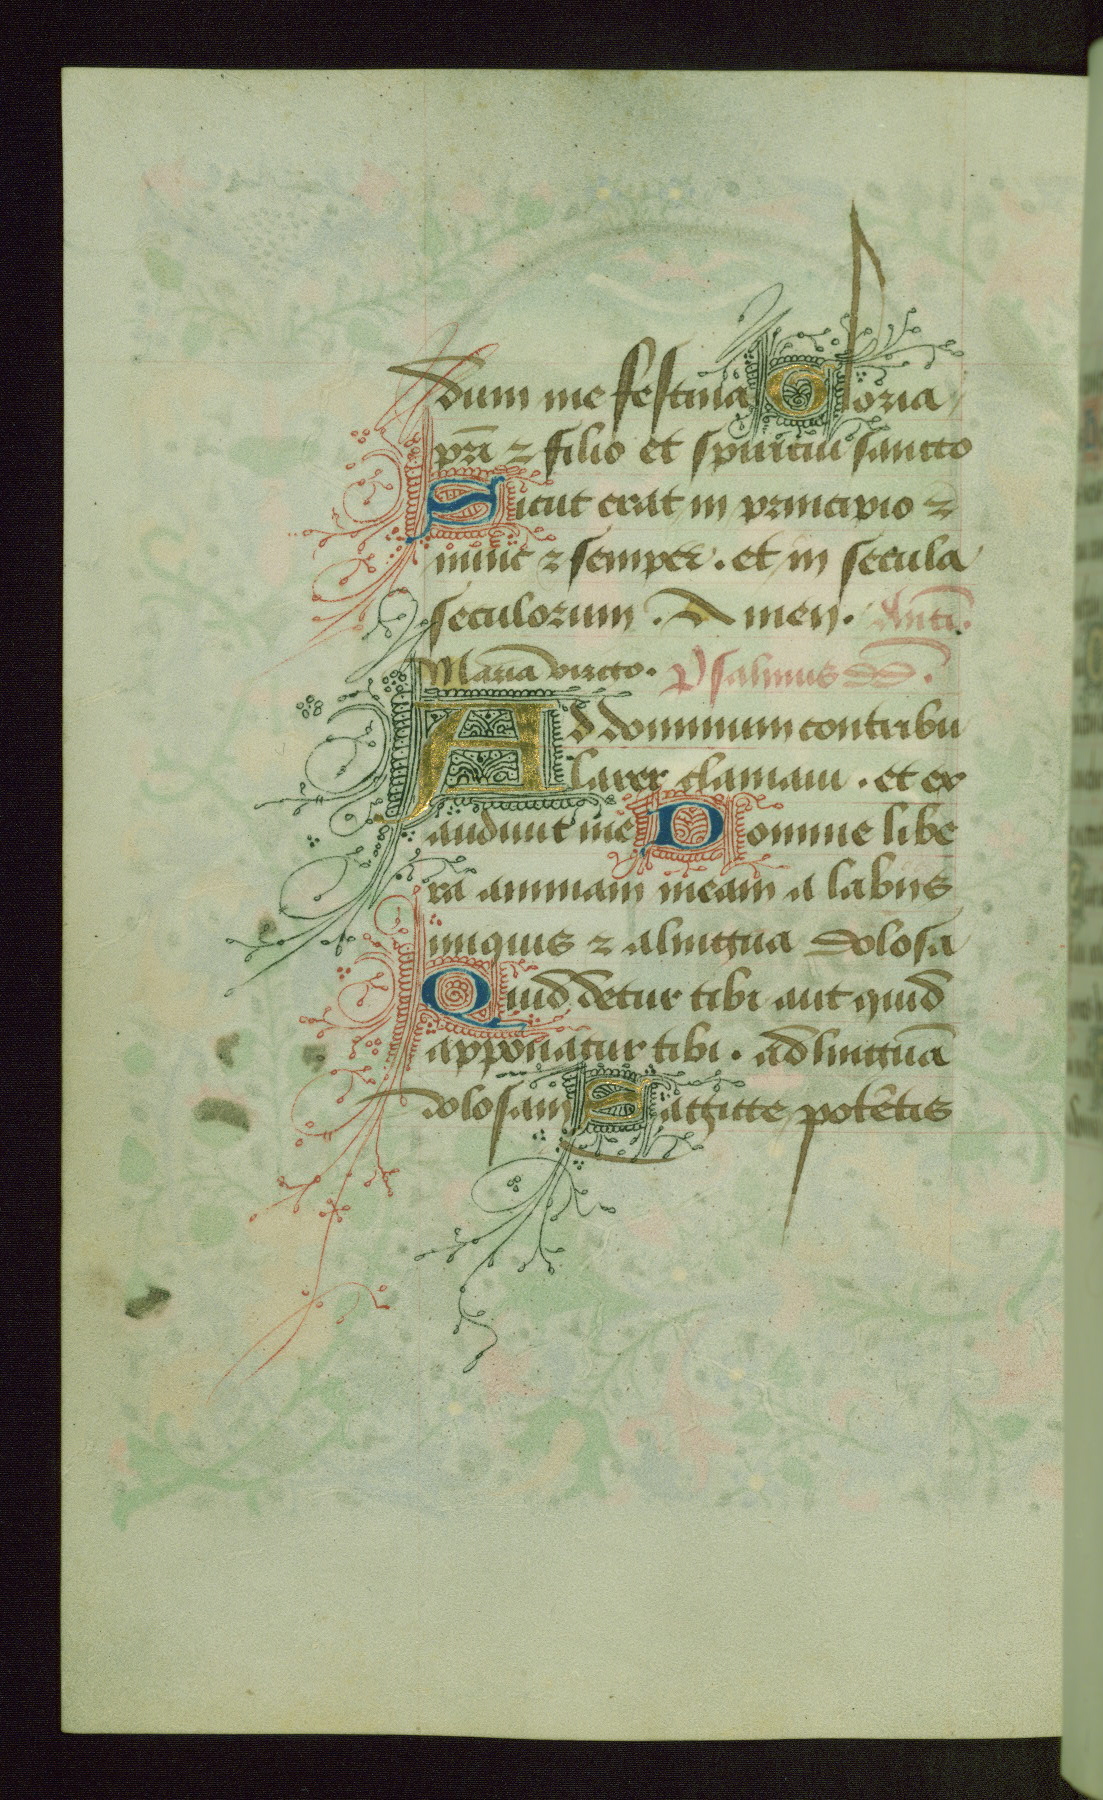 dum me festina Gloria
pr̄i ⁊ filio et spiritui sancto
Sicut erat in principio ⁊
nunc ⁊ semper . et in secula
seculorum . Amen . Anti.
Maria virgo . Psalmus dd .
Ad dominum contribu
larer clamaui . et ex
audiuit me Domine libe
ra animam meam a labiis
iniquis ⁊ alingua dolosa
Quid detur tibi aut quid
apponatur tibi . ad linguā
dolosam Sagitte potētis